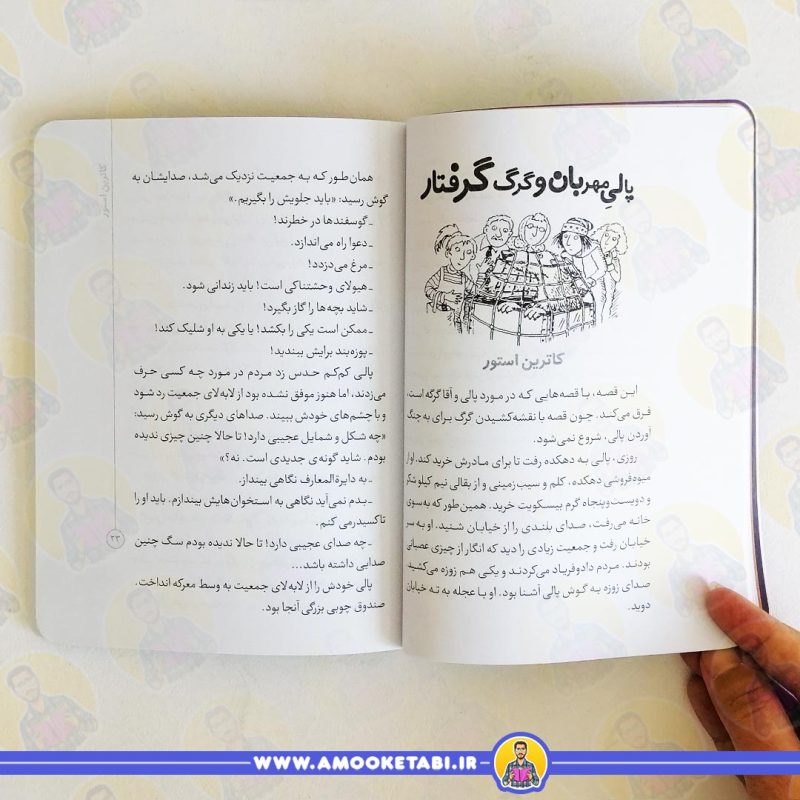 پالیِ مهربان و گرگ گرفتار
کاترین استور
این قصه، با قصه‌هایی که در مورد پالی و آقا گرگه است،
فرق می‌کند. چون قصه با نقشه‌کشیدن گرگ برای به چنگ
آوردن پالی، شروع نمی‌شود.
روزی، پالی به دهکده رفت تا برای مادرش خرید کند. او از
میوه‌فروشی دهکده، کلم و سیب‌زمینی و از بقالی نیم کیلو شکر
و دویست‌وپنجاه گرم بیسکویت خرید. همین‌طور که به سوی
خانه می‌رفت، صدای بلندی را از خیابان شنید. او به سر
خیابان رفت و جمعیت زیادی را دید که انگار از چیزی عصبانی
بودند. مردم دادوفریاد می‌کردند و یکی هم زوزه می‌کشید.
صدای زوزه به گوش پالی آشنا بود. او با عجله به ته خیابان
دوید.
کاترین استور
همان طور که به جمعیت نزدیک می‌شد، صدایشان به
گوش رسید: «باید جلویش را بگیریم.»
ـ گوسفندها در خطرند!
ـ دعوا راه می‌اندازد.
ـ مرغ می‌دزدد!
ـ هیولای وحشتناکی است! باید زندانی شود.
ـ شاید بچه‌ها را گاز بگیرد!
ـ ممکن است یکی را بکشد! یا یکی به او شلیک کند!
ـ پوزه‌بند برایش ببندید!
پالی کم‌کم حدس زد مردم در مورد چه کسی حرف
می‌زدند، اما هنوز موفق نشده بود از لابه‌لای جمعیت رد شود
و با چشم‌های خودش ببیند. صداهای دیگری به گوش رسید:
«چه شکل و شمایل عجیبی دارد! تا حالا چنین چیزی ندیده
بودم. شاید گونه‌ی جدیدی است. نه؟»
ـ به دایرةالمعارف نگاهی بینداز.
ـ بدم نمی‌آید نگاهی به استخوان‌هایش بیندازم. باید او را
تاکسیدرمی کنم.
ـ چه صدای عجیبی دارد! تا حالا ندیده بودم سگ چنین
صدایی داشته باشد...
پالی خودش را از لابه‌لای جمعیت به وسط معرکه انداخت.
صندوق چوبی بزرگی آنجا بود.
۲۳
WWW.AMOOKETABI.IR